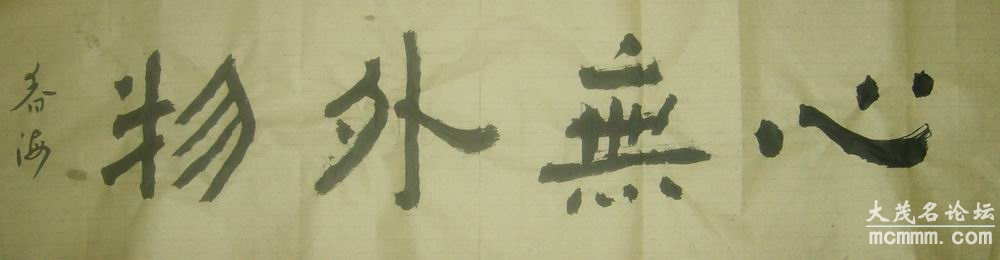 心無外物
春海
大茂名论坛
mcmmm.com